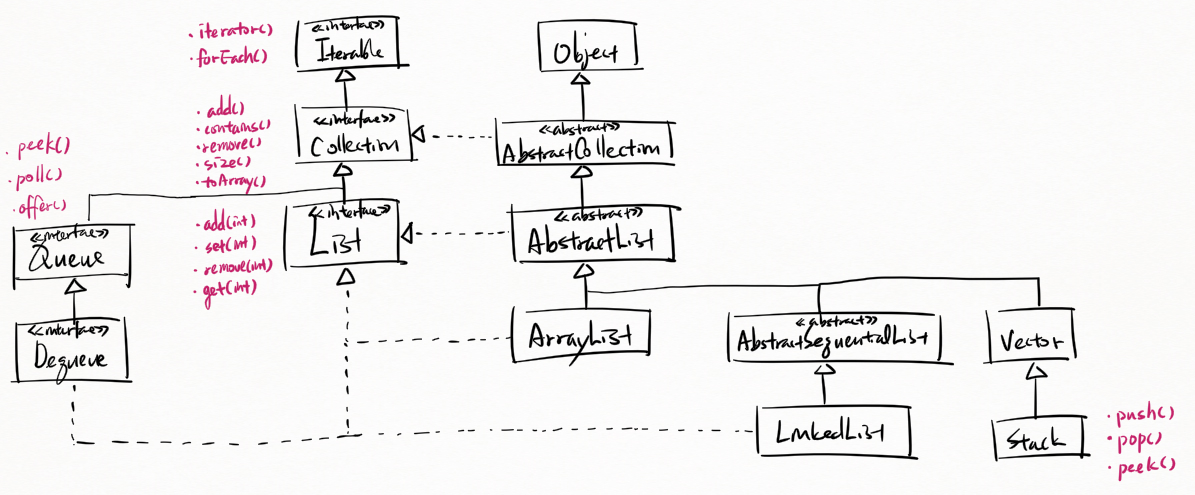 · iterator()
· forEach()
<<interface>>
Iterable
Object
· add()
· contains()
· remove()
· size()
· toArray()
<<interface>>
Collection
<<abstract>>
AbstractCollection
· peek()
· poll()
· offer()
· add(int)
· set(int)
· remove(int)
· get(int)
<<interface>>
List
<<abstract>>
AbstractList
<<interface>>
Queue
<<interface>>
Dequeue
ArrayList
<<abstract>>
AbstractSequentialList
Vector
LinkedList
Stack
· push()
· pop()
· peek()